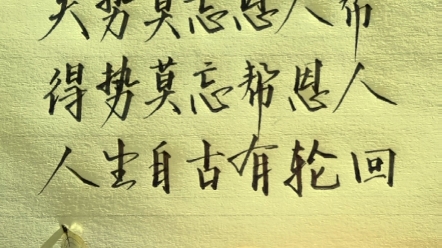 失势莫忘恩人帮
得势莫忘帮恩人
人生自古有轮回